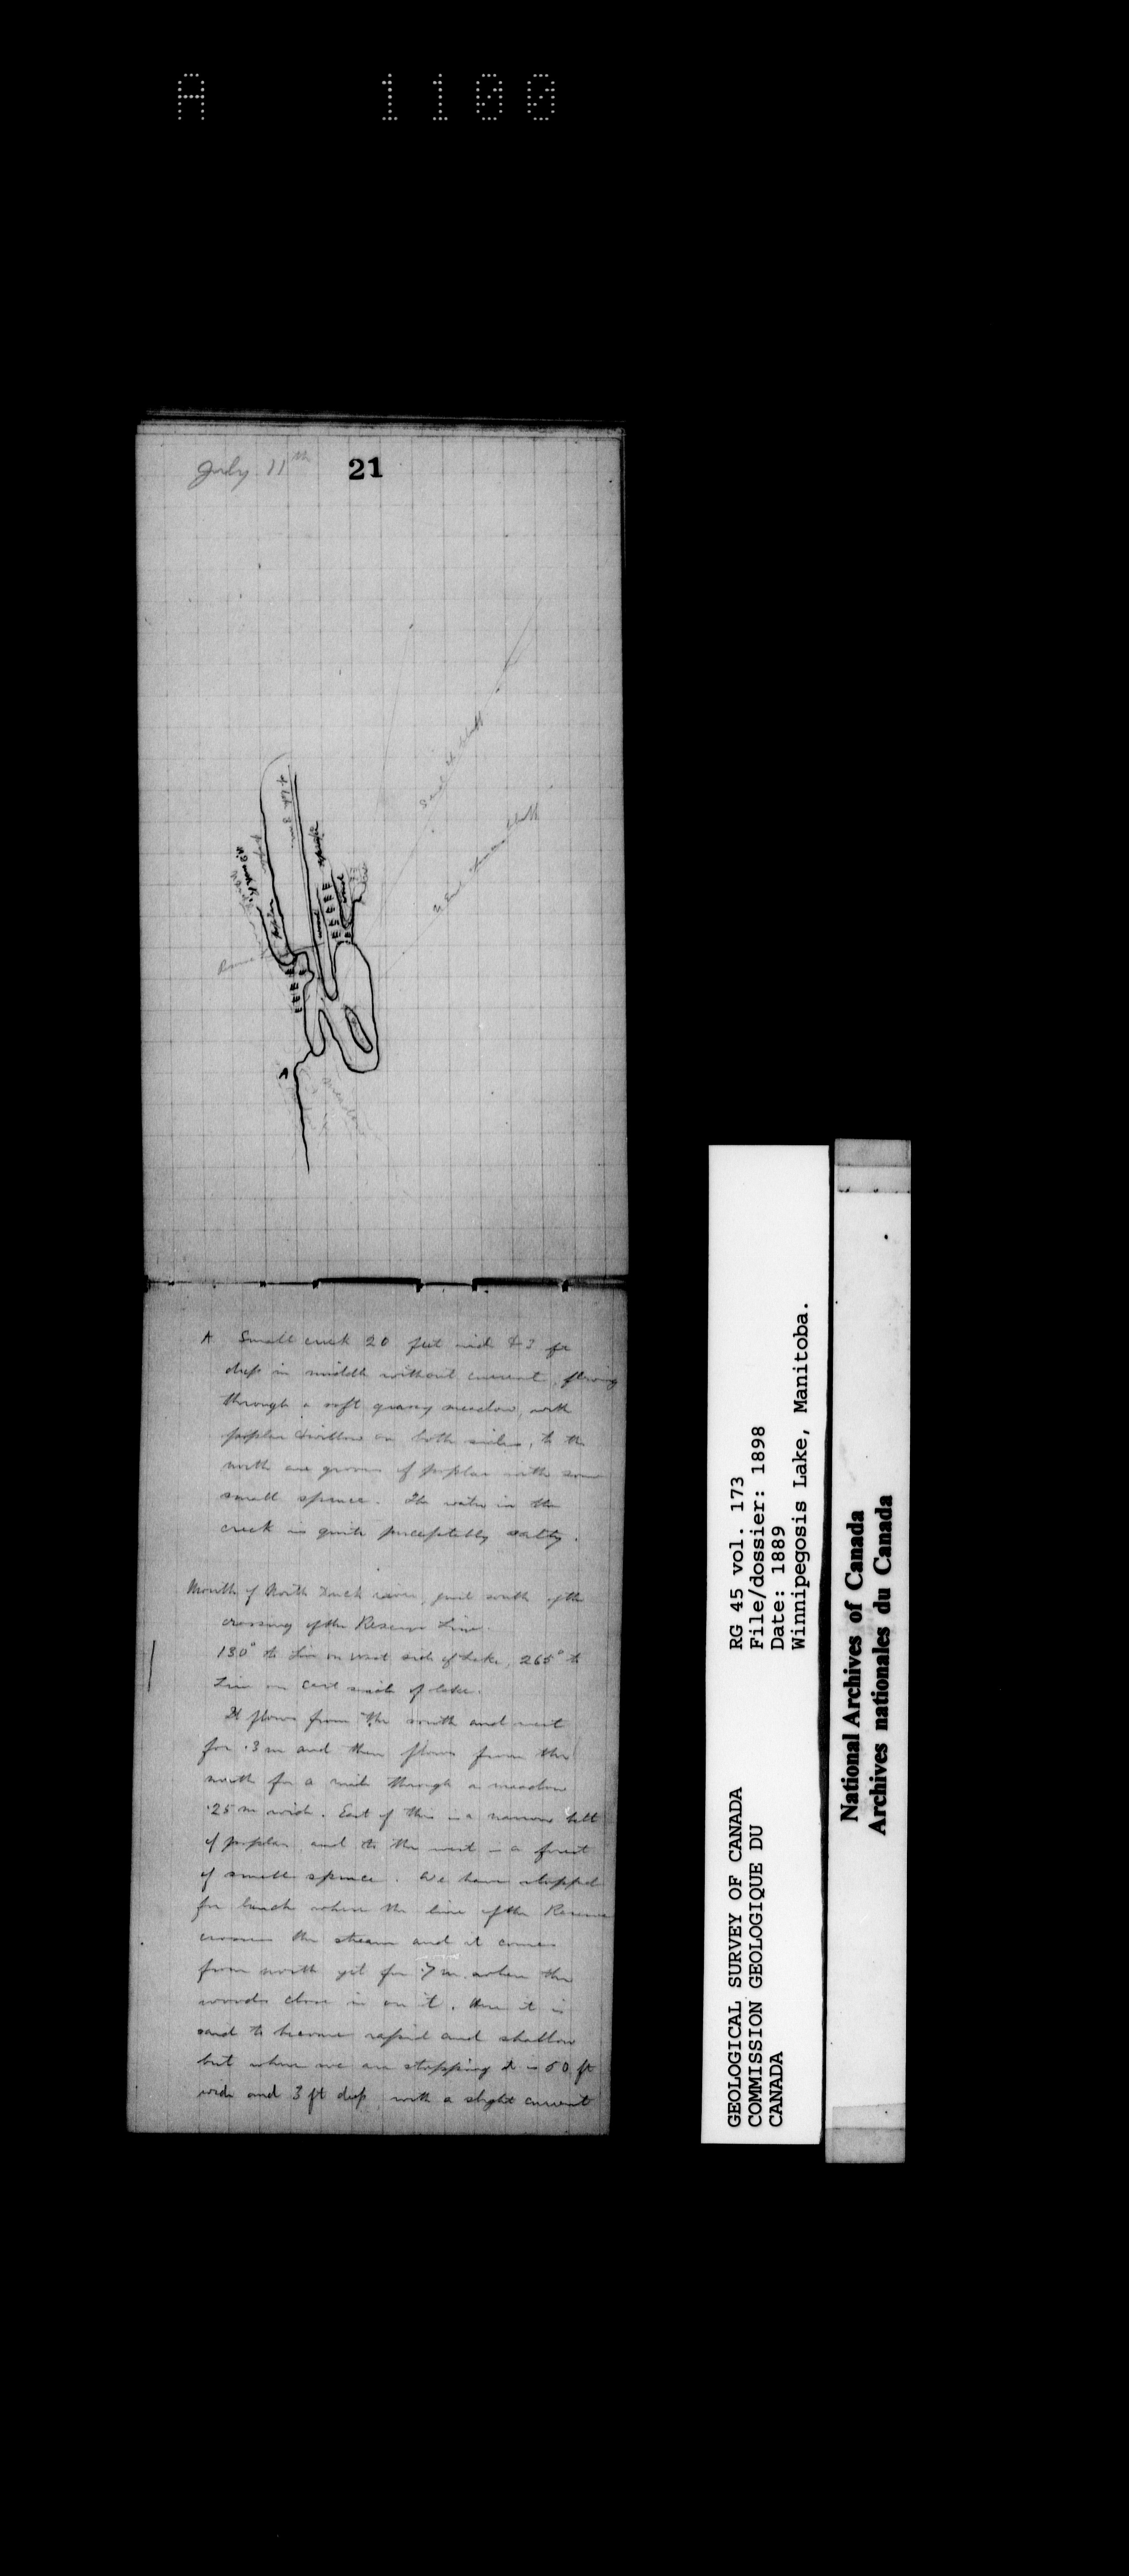 A 1100
July 11th 21
S end of bluff
S. End of bluff
poplar
wood
wood
A
meadow
A Small creek 20 feet wide & 3 ft
deep in middle without current, flowing
through a soft grassy meadow, with
poplar & willow on both sides, to the
north are groves of poplar with some
small spruce. The water in the
creek is quite perceptibly salty.
Mouth of North Duck river, just south of the
crossing of the Reserve Line.
130° to Line on west side of Lake, 265° to
Line on east side of lake.
It flows from the south and west
for .3 m and then flows from the
north for a mile through a meadow
.25 m wide. East of this is a narrow belt
of poplar and to the west is a forest
of small spruce. We have stopped
for lunch where the line of the Reserve
crosses the stream and it comes
from north yet for .7 m. where the
woods close in on it. Here it is
said to become rapid and shallow
but where we are stopping it is 50 ft
wide and 3 ft deep with a slight current
GEOLOGICAL SURVEY OF CANADA
COMMISSION GEOLOGIQUE DU
CANADA
RG 45 vol. 173
File/dossier: 1898
Date: 1889
Winnipegosis Lake, Manitoba.
National Archives of Canada
Archives nationales du Canada